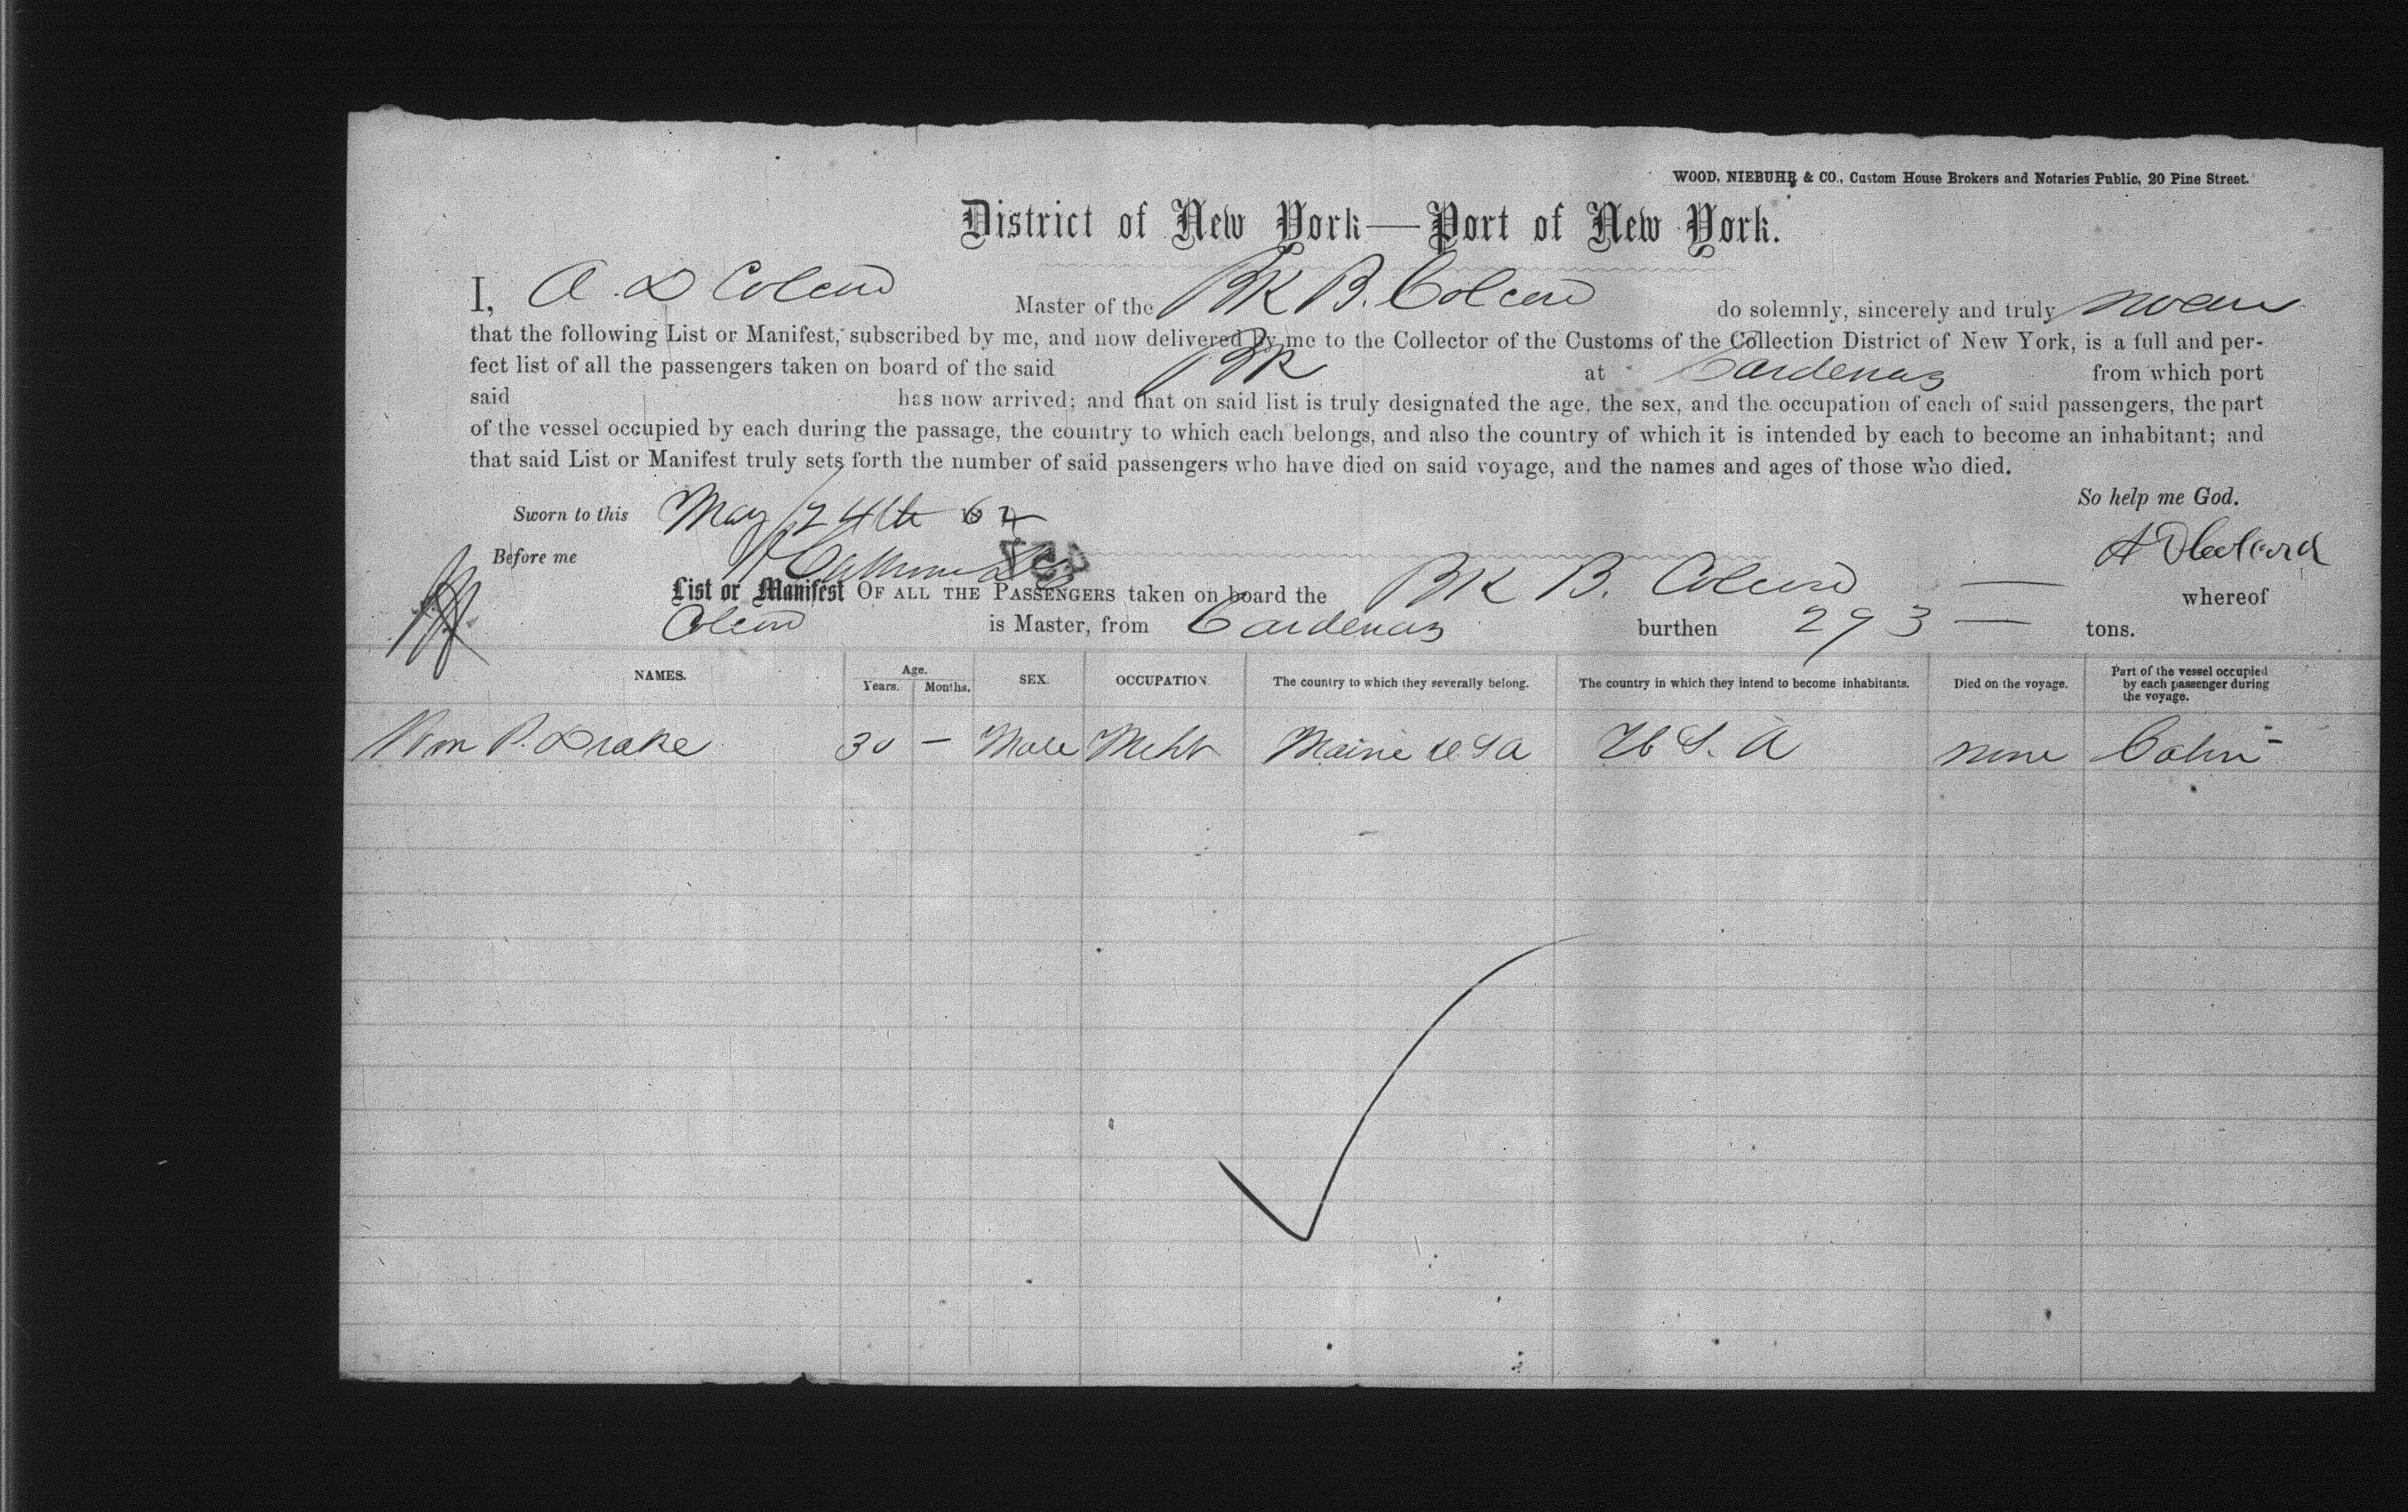 WOOD, NIEBUHR & CO., Custom House Brokers and Notaries Public, 20 Pine Street.
District of New York—Port of New York.
I, A. D Colcord Master of the BK B. Colcord do solemnly, sincerely and truly swear
that the following List or Manifest, subscribed by me, and now delivered by me to the Collector of the Customs of the Collection District of New York, is a full and per-
fect list of all the passengers taken on board of the said BK at Cardenas from which port
said has now arrived; and that on said list is truly designated the age, the sex, and the occupation of each of said passengers, the part
of the vessel occupied by each during the passage, the country to which each belongs, and also the country of which it is intended by each to become an inhabitant; and
that said List or Manifest truly sets forth the number of said passengers who have died on said voyage, and the names and ages of those who died.
So help me God.
Sworn to this May 24th 62
Before me
A D Colcord
List or Manifest OF ALL THE PASSENGERS taken on board the BK B. Colcord — whereof
Colcord is Master, from Cardenas burthen 293 — tons.
NAMES. Age. Years. Months. SEX. OCCUPATION. The country to which they severally belong. The country in which they intend to become inhabitants. Died on the voyage. Part of the vessel occupied by each passenger during the voyage.
Wm P. Drake 30 — Male Mcht Maine U S A U S. A none Cabin